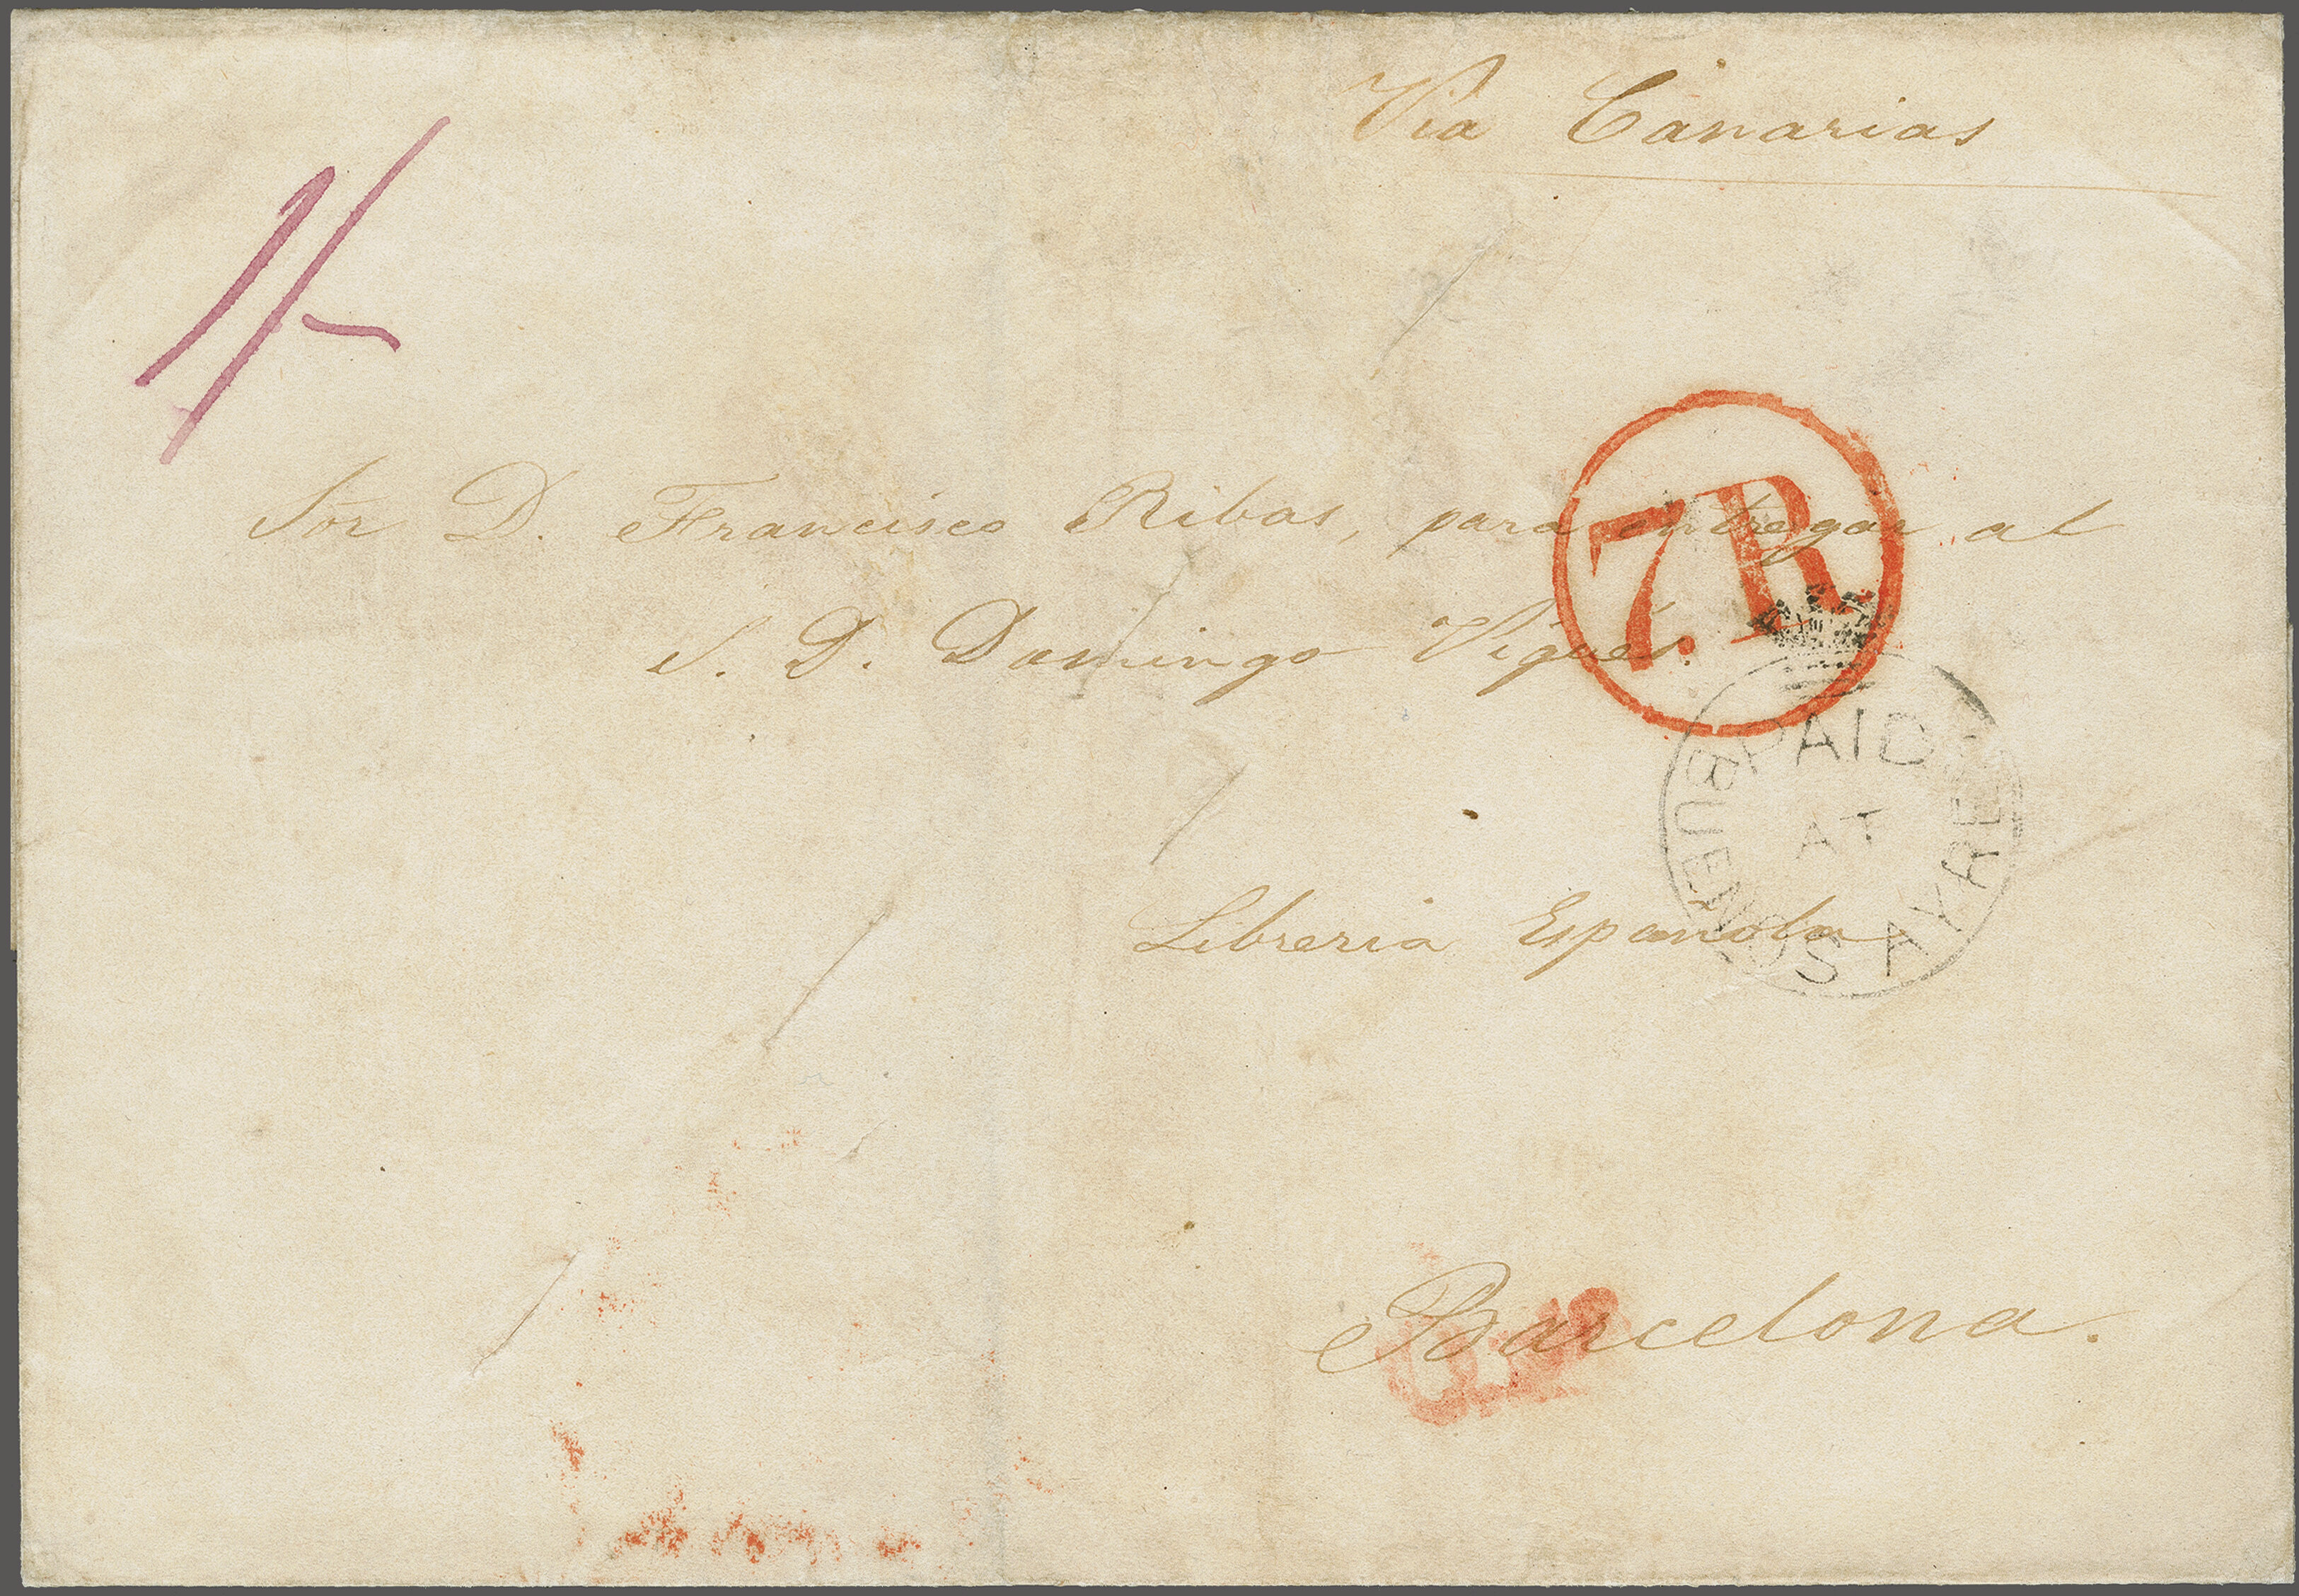 Via Canarias
1/-
Sor D. Francisco Ribas, para entregar al
S. D. Domingo Vigués.
7.R
PAID
AT
BUENOS AYRES
Libreria Española
Barcelona.